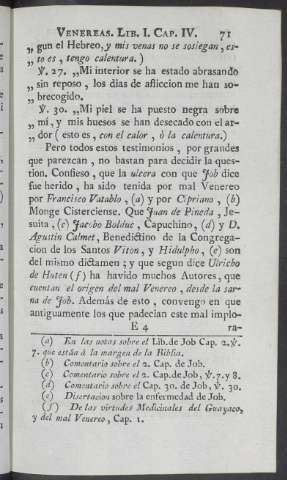 VENEREAS. LIB. I. CAP. IV. 71
„ gun el Hebreo, y mis venas no se sosiegan, es-
„ to es, tengo calentura. )
℣. 27. „Mi interior se ha estado abrasando
„ sin reposo, los dias de afliccion me han so-
„ brecogido.
℣. 30. „Mi piel se ha puesto negra sobre
„ mí, y mis huesos se han desecado con el ar-
„ dor ( esto es, con el calor, ò la calentura.)
Pero todos estos testimonios, por grandes
que parezcan, no bastan para decidir la ques-
tion. Confieso, que la ulcera con que Job dice
fue herido, ha sido tenida por mal Venereo
por Francisco Vatablo, (a) y por Cipriano, (b)
Monge Cisterciense. Que Juan de Pineda, Je-
suita, (c) Jacobo Bolduc, Capuchino, (d) y D.
Agustin Calmet, Benedictino de la Congrega-
cion de los Santos Viton, y Hidulpho, (e) son
del mismo dictamen; y que segun dice Ulricho
de Huten (f) ha havido muchos Autores, que
cuentan el origen del mal Venereo, desde la sar-
na de Job. Además de esto, convengo en que
antiguamente los que padecian este mal implo-
E 4 ra-
(a) En las notas sobre el Lib. de Job Cap. 2. ℣.
7. que están à la margen de la Biblia.
(b) Comentario sobre el 2. Cap. de Job.
(c) Comentario sobre el 2. Cap. de Job, ℣. 7. y 8.
(d) Comentario sobre el Cap. 30. de Job, ℣. 30.
(e) Disertacion sobre la enfermedad de Job.
(f) De las virtudes Medicinales del Guayaco,
y del mal Venereo, Cap. 1.